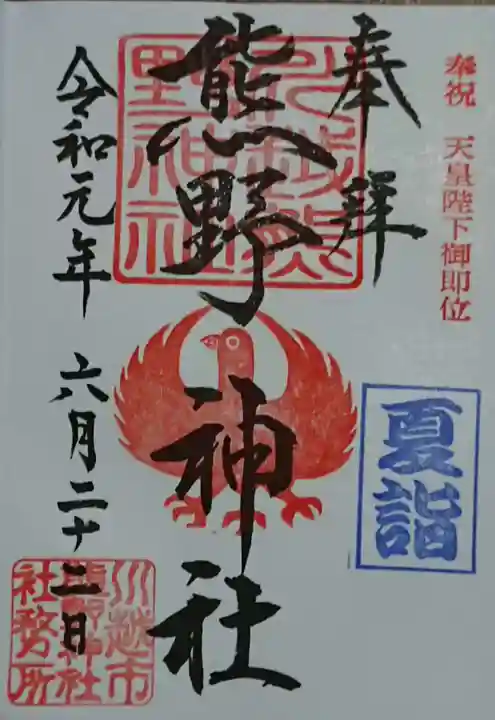 奉祝 天皇陛下御即位
奉拝
夏詣
川越熊野神社
熊野神社
令和元年 六月二十二日
川越市
熊野神社
社務所